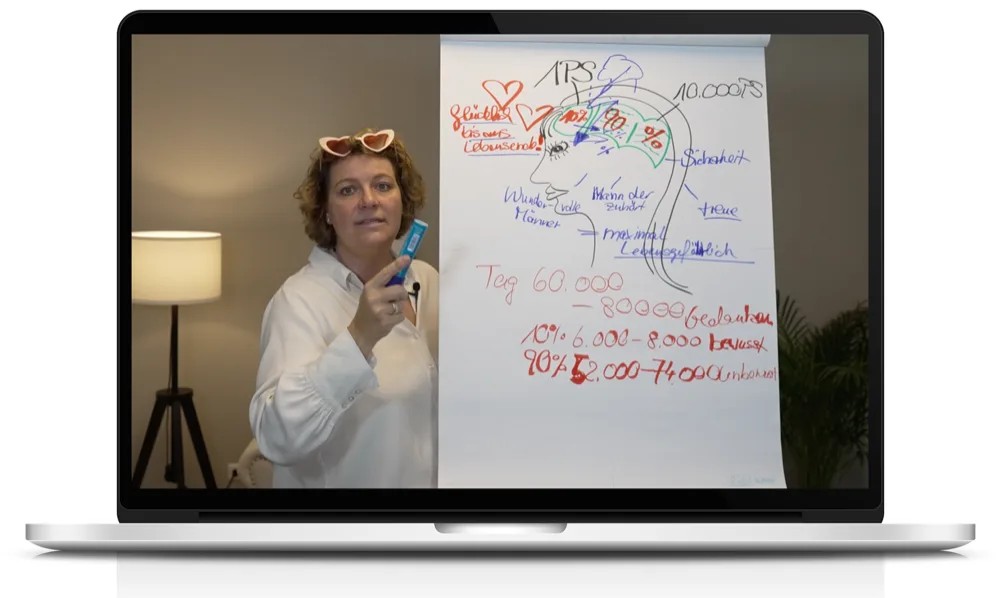 1PS
10.000PS
Glücklich
bis ans
Lebensende!
10%
90
%
%
Sicherheit
Wunder-volle
Männer
Mann der
zuhört
treue
= maximal
Lebensgefährlich
Tag 60.000
- 80000 Gedanken
10% 6.000-8.000 bewusst
90% 52.000-74000 unbewusst